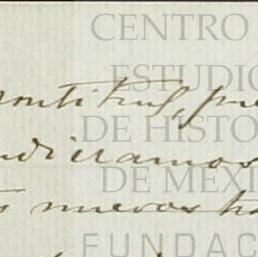 CENTRO
ESTUDIO
DE HISTO
DE MEX
FUNDAC
prontitud, pue
udieramos
s nuevos tra